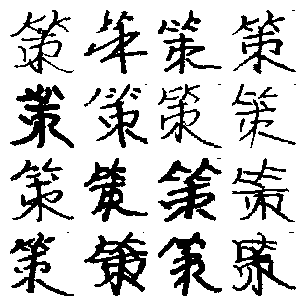 策笨策策
策策策策
策策策策
策策策策